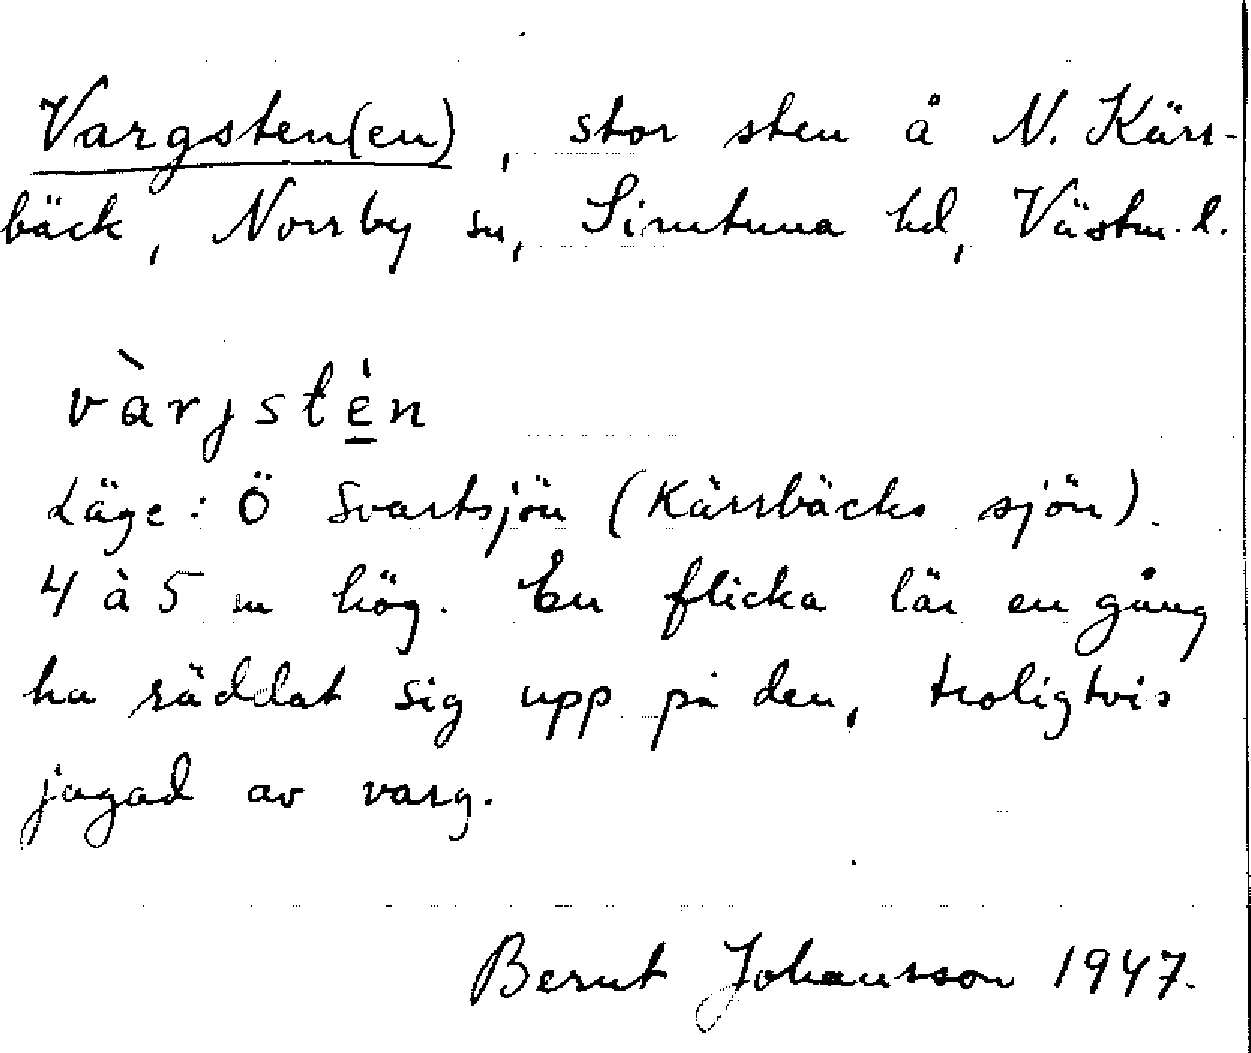 Vargsten(en), stor sten å N. Kärr-
bäck, Norrby sn, Simtuna hd, Västm. l.
vàrjstén
Läge: Ö Svartsjön (Kärrbäcks sjön).
4 à 5 m hög. En flicka lär en gång
ha räddat sig upp på den, troligtvis
jagad av varg.
Bernt Johansson 1947.